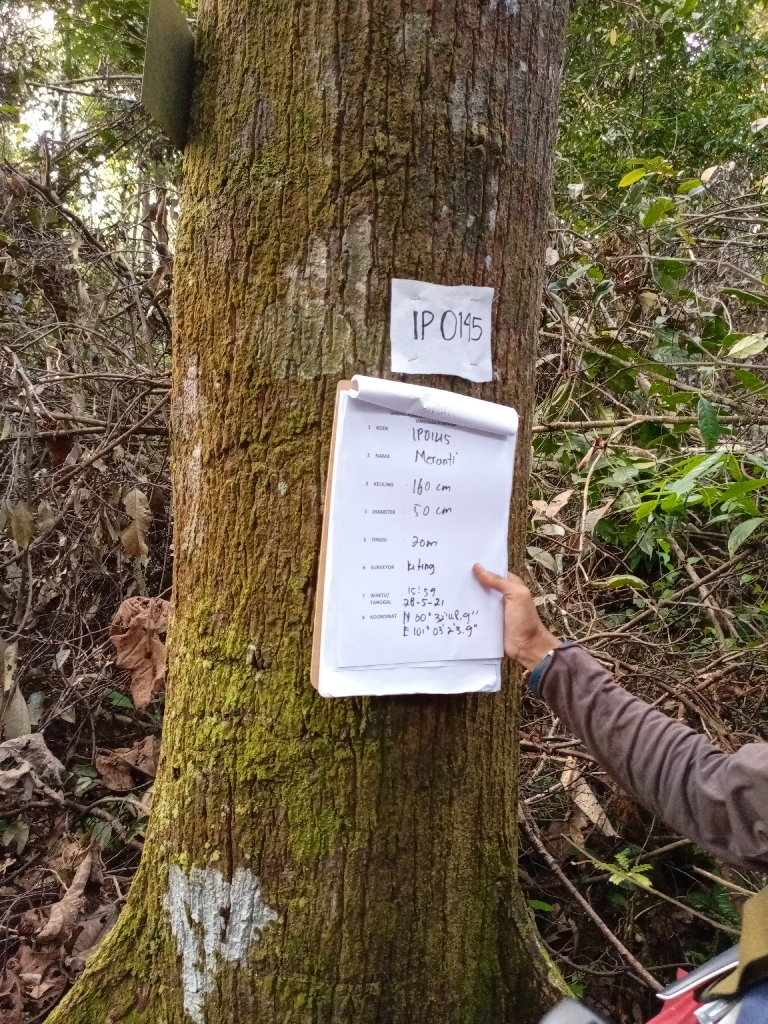 IP0145
1 KODE IP0145
2 NAMA Meranti
3 KELILING 160 cm
4 DIAMETER 50 cm
5 TINGGI 20m
6 SURVEYOR Kiting
7 WAKTU/ 15:59
TANGGAL 28-5-21
8 KOORDINAT N 00° 32' 48.9"
E 101° 03' 23.9"